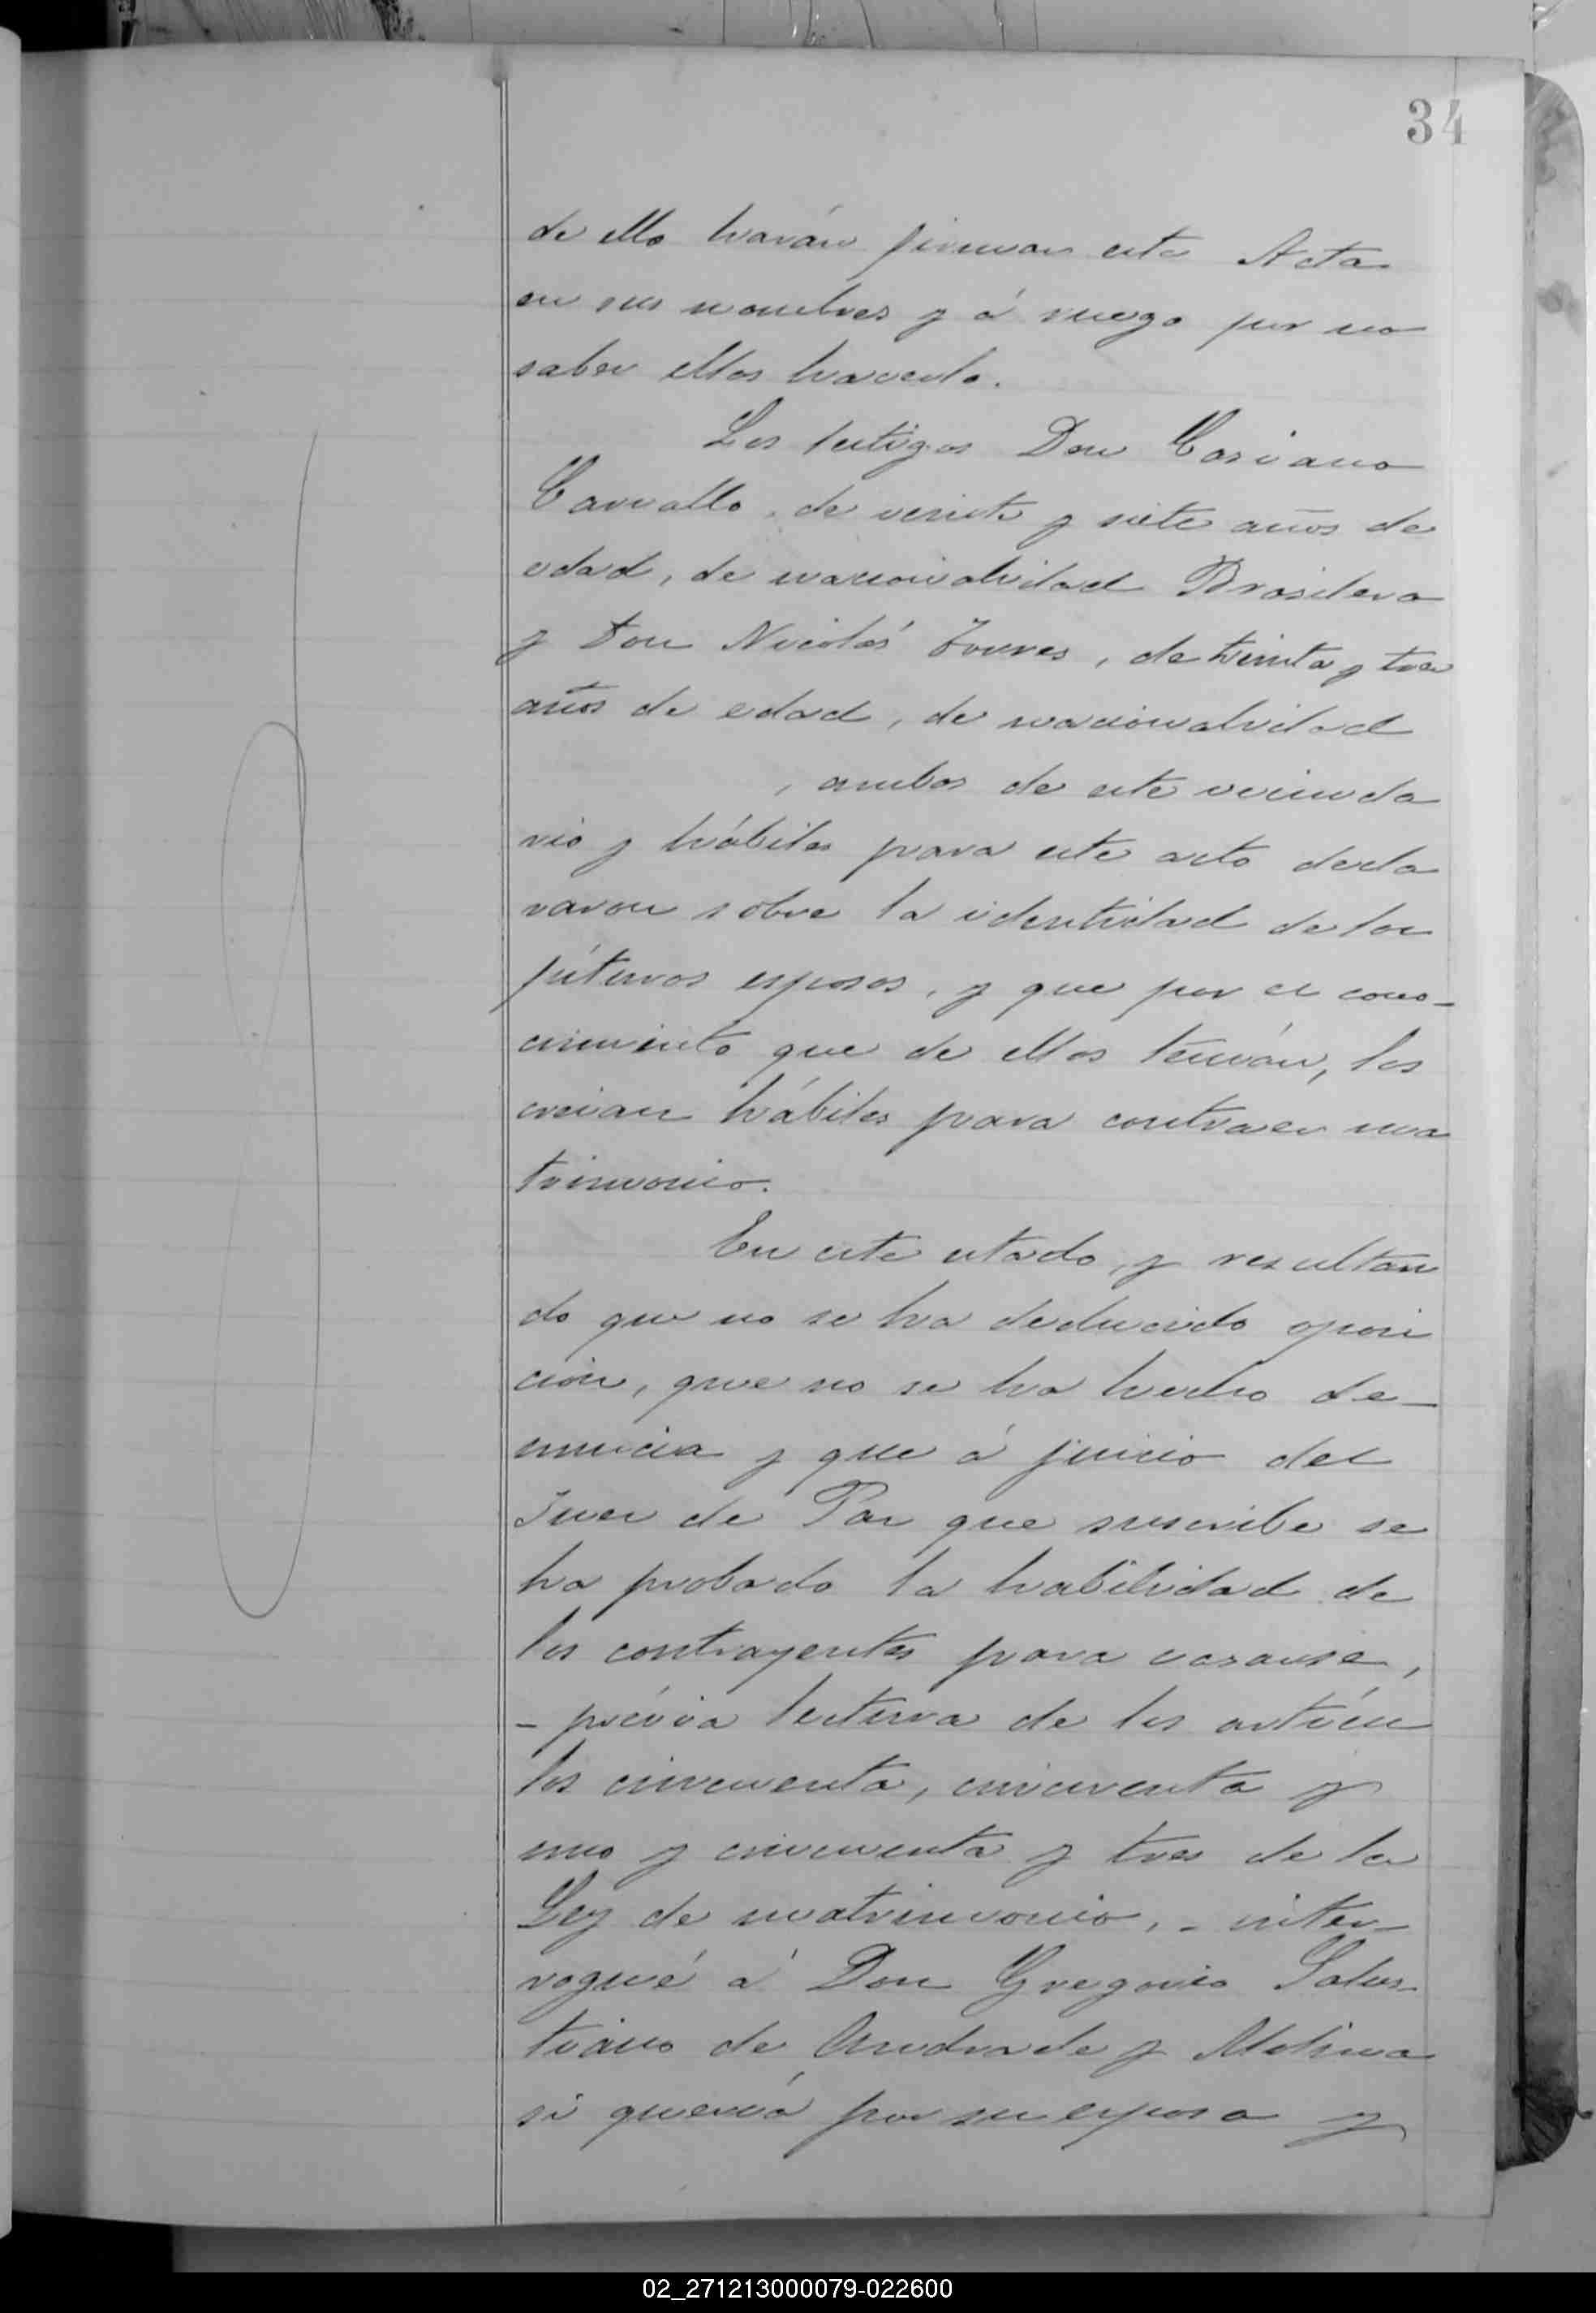 34
de ello harán firmar este Acta
en sus nombres y á ruego por no
saber ellos hacerlo.
Los testigos Don Casiano
Carvallo, de veinte y siete años de
edad, de nacionalidad Brasilera
y Don Nicolás Torres, de treinta y tres
años de edad, de nacionalidad
, ambos de este vecinda
rio y hábiles para este acto decla
raron sobre la identidad de los
fúturos esposos, y que por el cono-
cimiento que de ellos tenían, los
creian hábiles para contraer ma
trimonio.
En este estado, y resultan
do que no se ha deducido oposi
ción, que no se ha hecho de-
nuncia y que á juicio del
Juez de Paz que suscribe se
ha probado la habilidad de
los contrayentes para casarse,
- prévia lectura de los artícu
los cincuenta, cincuenta y
uno y cincuenta y tres de la
Ley de matrimonio, - inter-
rogué á Don Gregorio Salus-
tiano de Andrade y Molina
si quería por su esposa y
02_271213000079-022600